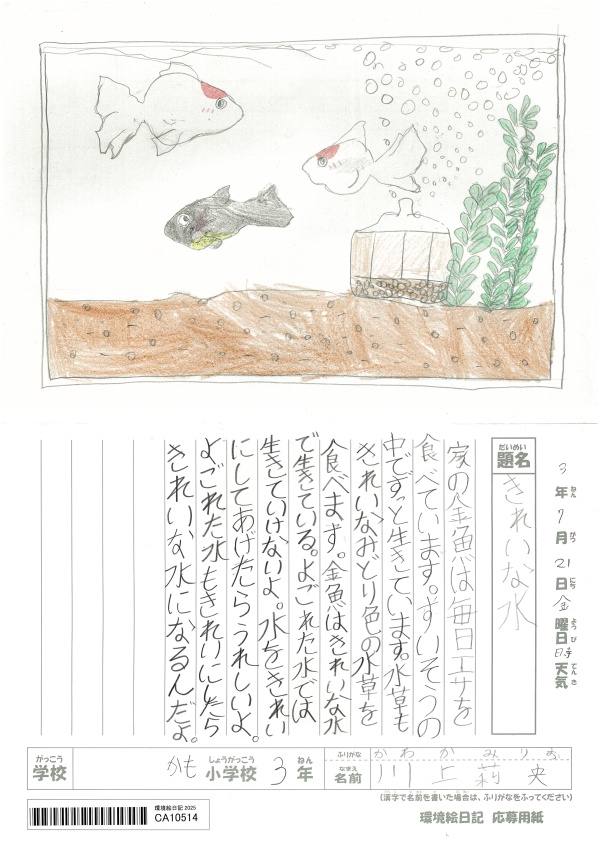 3年ねん7月がつ21日にち金曜日ようび晴天気てんき
だいめい
題名
きれいな水
家の金魚は毎日エサを
食べています。すいそうの
中でずっと生きています。水草も
きれいなみどり色の水草を
食べます。金魚はきれいな水
で生きている。よごれた水では
生きていけないよ。水をきれい
にしてあげたらうれしいよ。
よごれた水もきれいにしたら
きれいな水になるんだよ。
がっこう
学校
かも
しょうがっこう
小学校
3
ねん
年
ふりがな
かわかみりお
なまえ
名前
川上莉央
(漢字で名前を書いた場合は、ふりがなをふってください)
環境絵日記 2025
CA10514
環境絵日記 応募用紙